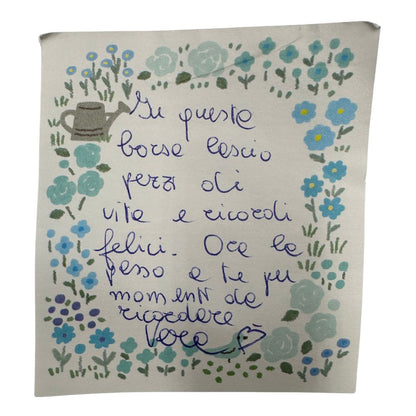 In queste
borse lascio
pezzi di
vita e ricordi
felici. Ora le
passo a te per
momenti da
ricordare
Vera